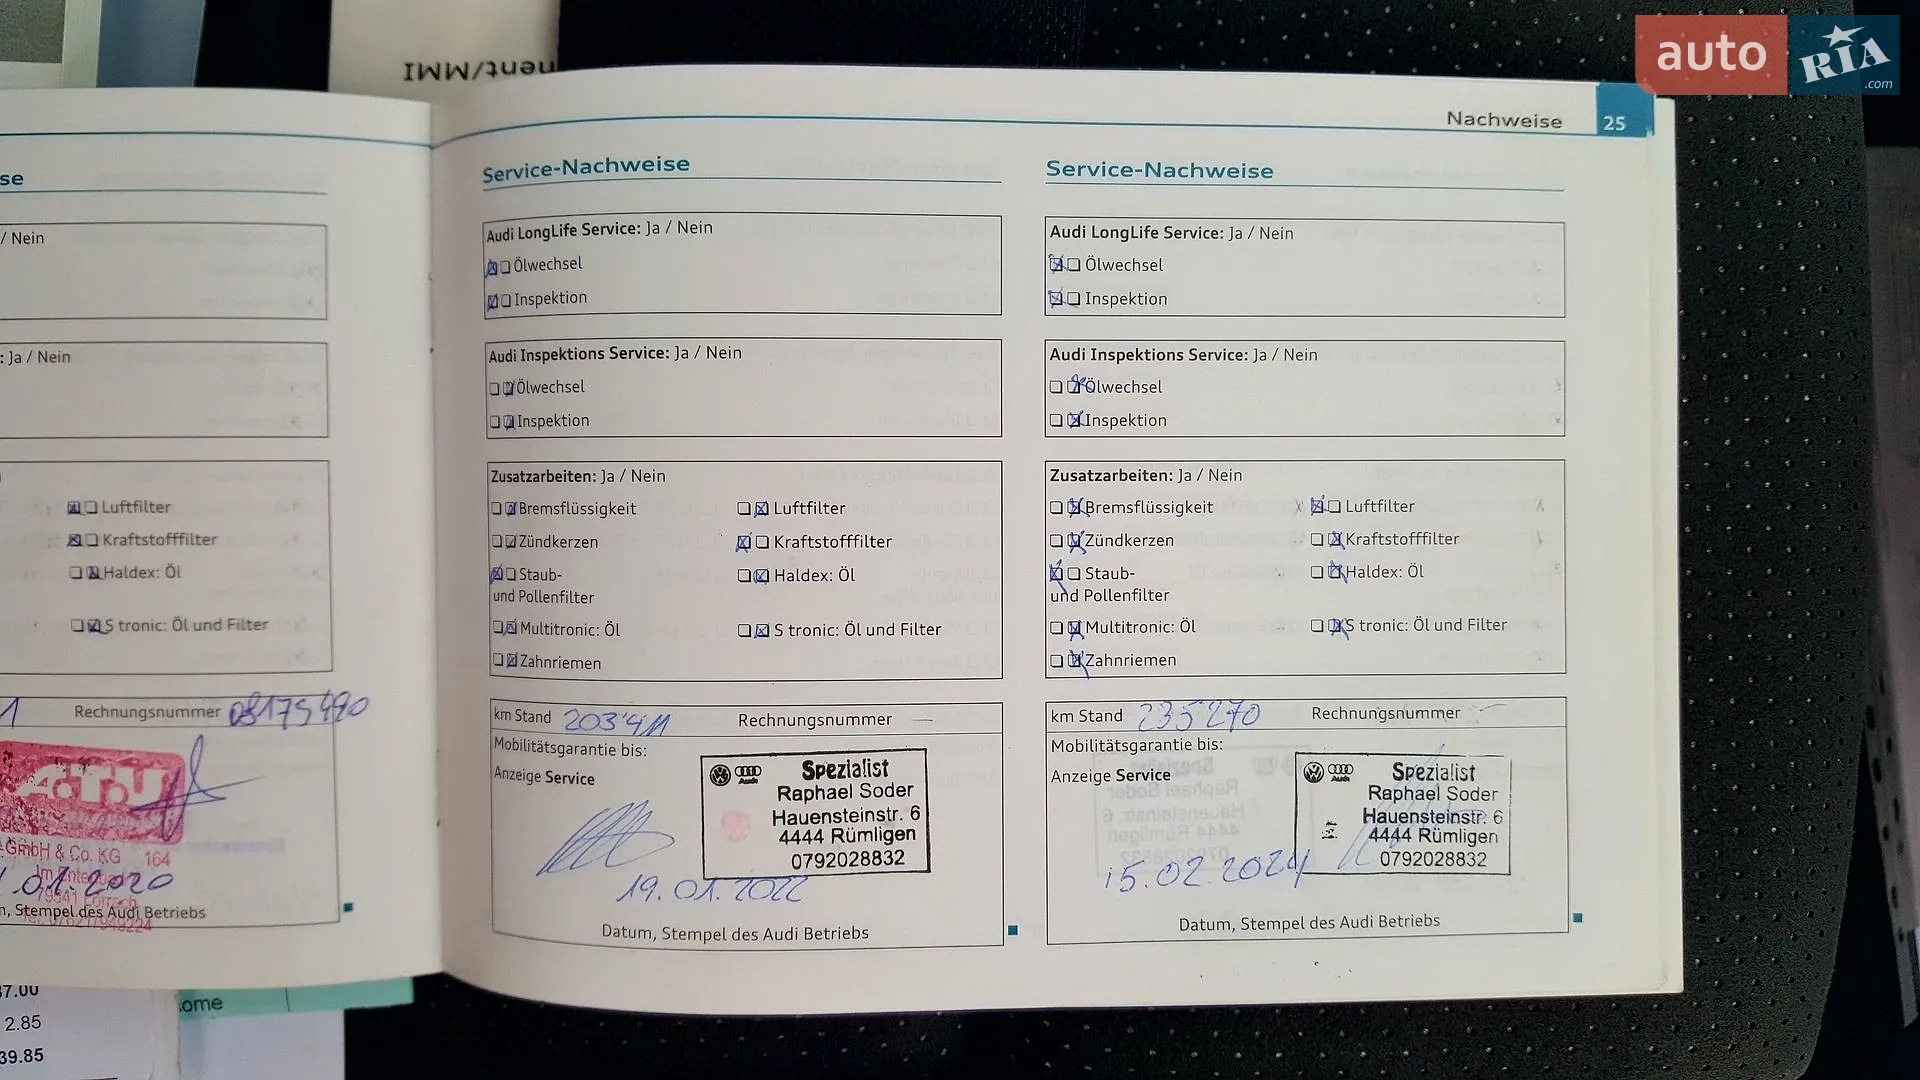 auto RIA.com
nent/MMI
Nachweise 25
se
/ Nein
: Ja / Nein
Luftfilter
Kraftstofffilter
Haldex: Öl
S tronic: Öl und Filter
1 Rechnungsnummer 08175490
A.T.U
GmbH & Co. KG 164
.01.2020
79541 Lörrach
n, Stempel des Audi Betriebs
37.00
2.85
39.85
ome
Service-Nachweise
Audi LongLife Service: Ja / Nein
Ölwechsel
Inspektion
Audi Inspektions Service: Ja / Nein
Ölwechsel
Inspektion
Zusatzarbeiten: Ja / Nein
Bremsflüssigkeit Luftfilter
Zündkerzen Kraftstofffilter
Staub- Haldex: Öl
und Pollenfilter
Multitronic: Öl S tronic: Öl und Filter
Zahnriemen
km Stand 203'411 Rechnungsnummer —
Mobilitätsgarantie bis:
Anzeige Service
Audi
Spezialist
Raphael Soder
Hauensteinstr. 6
4444 Rümligen
0792028832
19.01.2022
Datum, Stempel des Audi Betriebs
Service-Nachweise
Audi LongLife Service: Ja / Nein
Ölwechsel
Inspektion
Audi Inspektions Service: Ja / Nein
Ölwechsel
Inspektion
Zusatzarbeiten: Ja / Nein
Bremsflüssigkeit Luftfilter
Zündkerzen Kraftstofffilter
Staub- Haldex: Öl
und Pollenfilter
Multitronic: Öl S tronic: Öl und Filter
Zahnriemen
km Stand 235270 Rechnungsnummer —
Mobilitätsgarantie bis:
Anzeige Service
Audi
Spezialist
Raphael Soder
Hauensteinstr. 6
4444 Rümligen
0792028832
15.02.2024
Datum, Stempel des Audi Betriebs